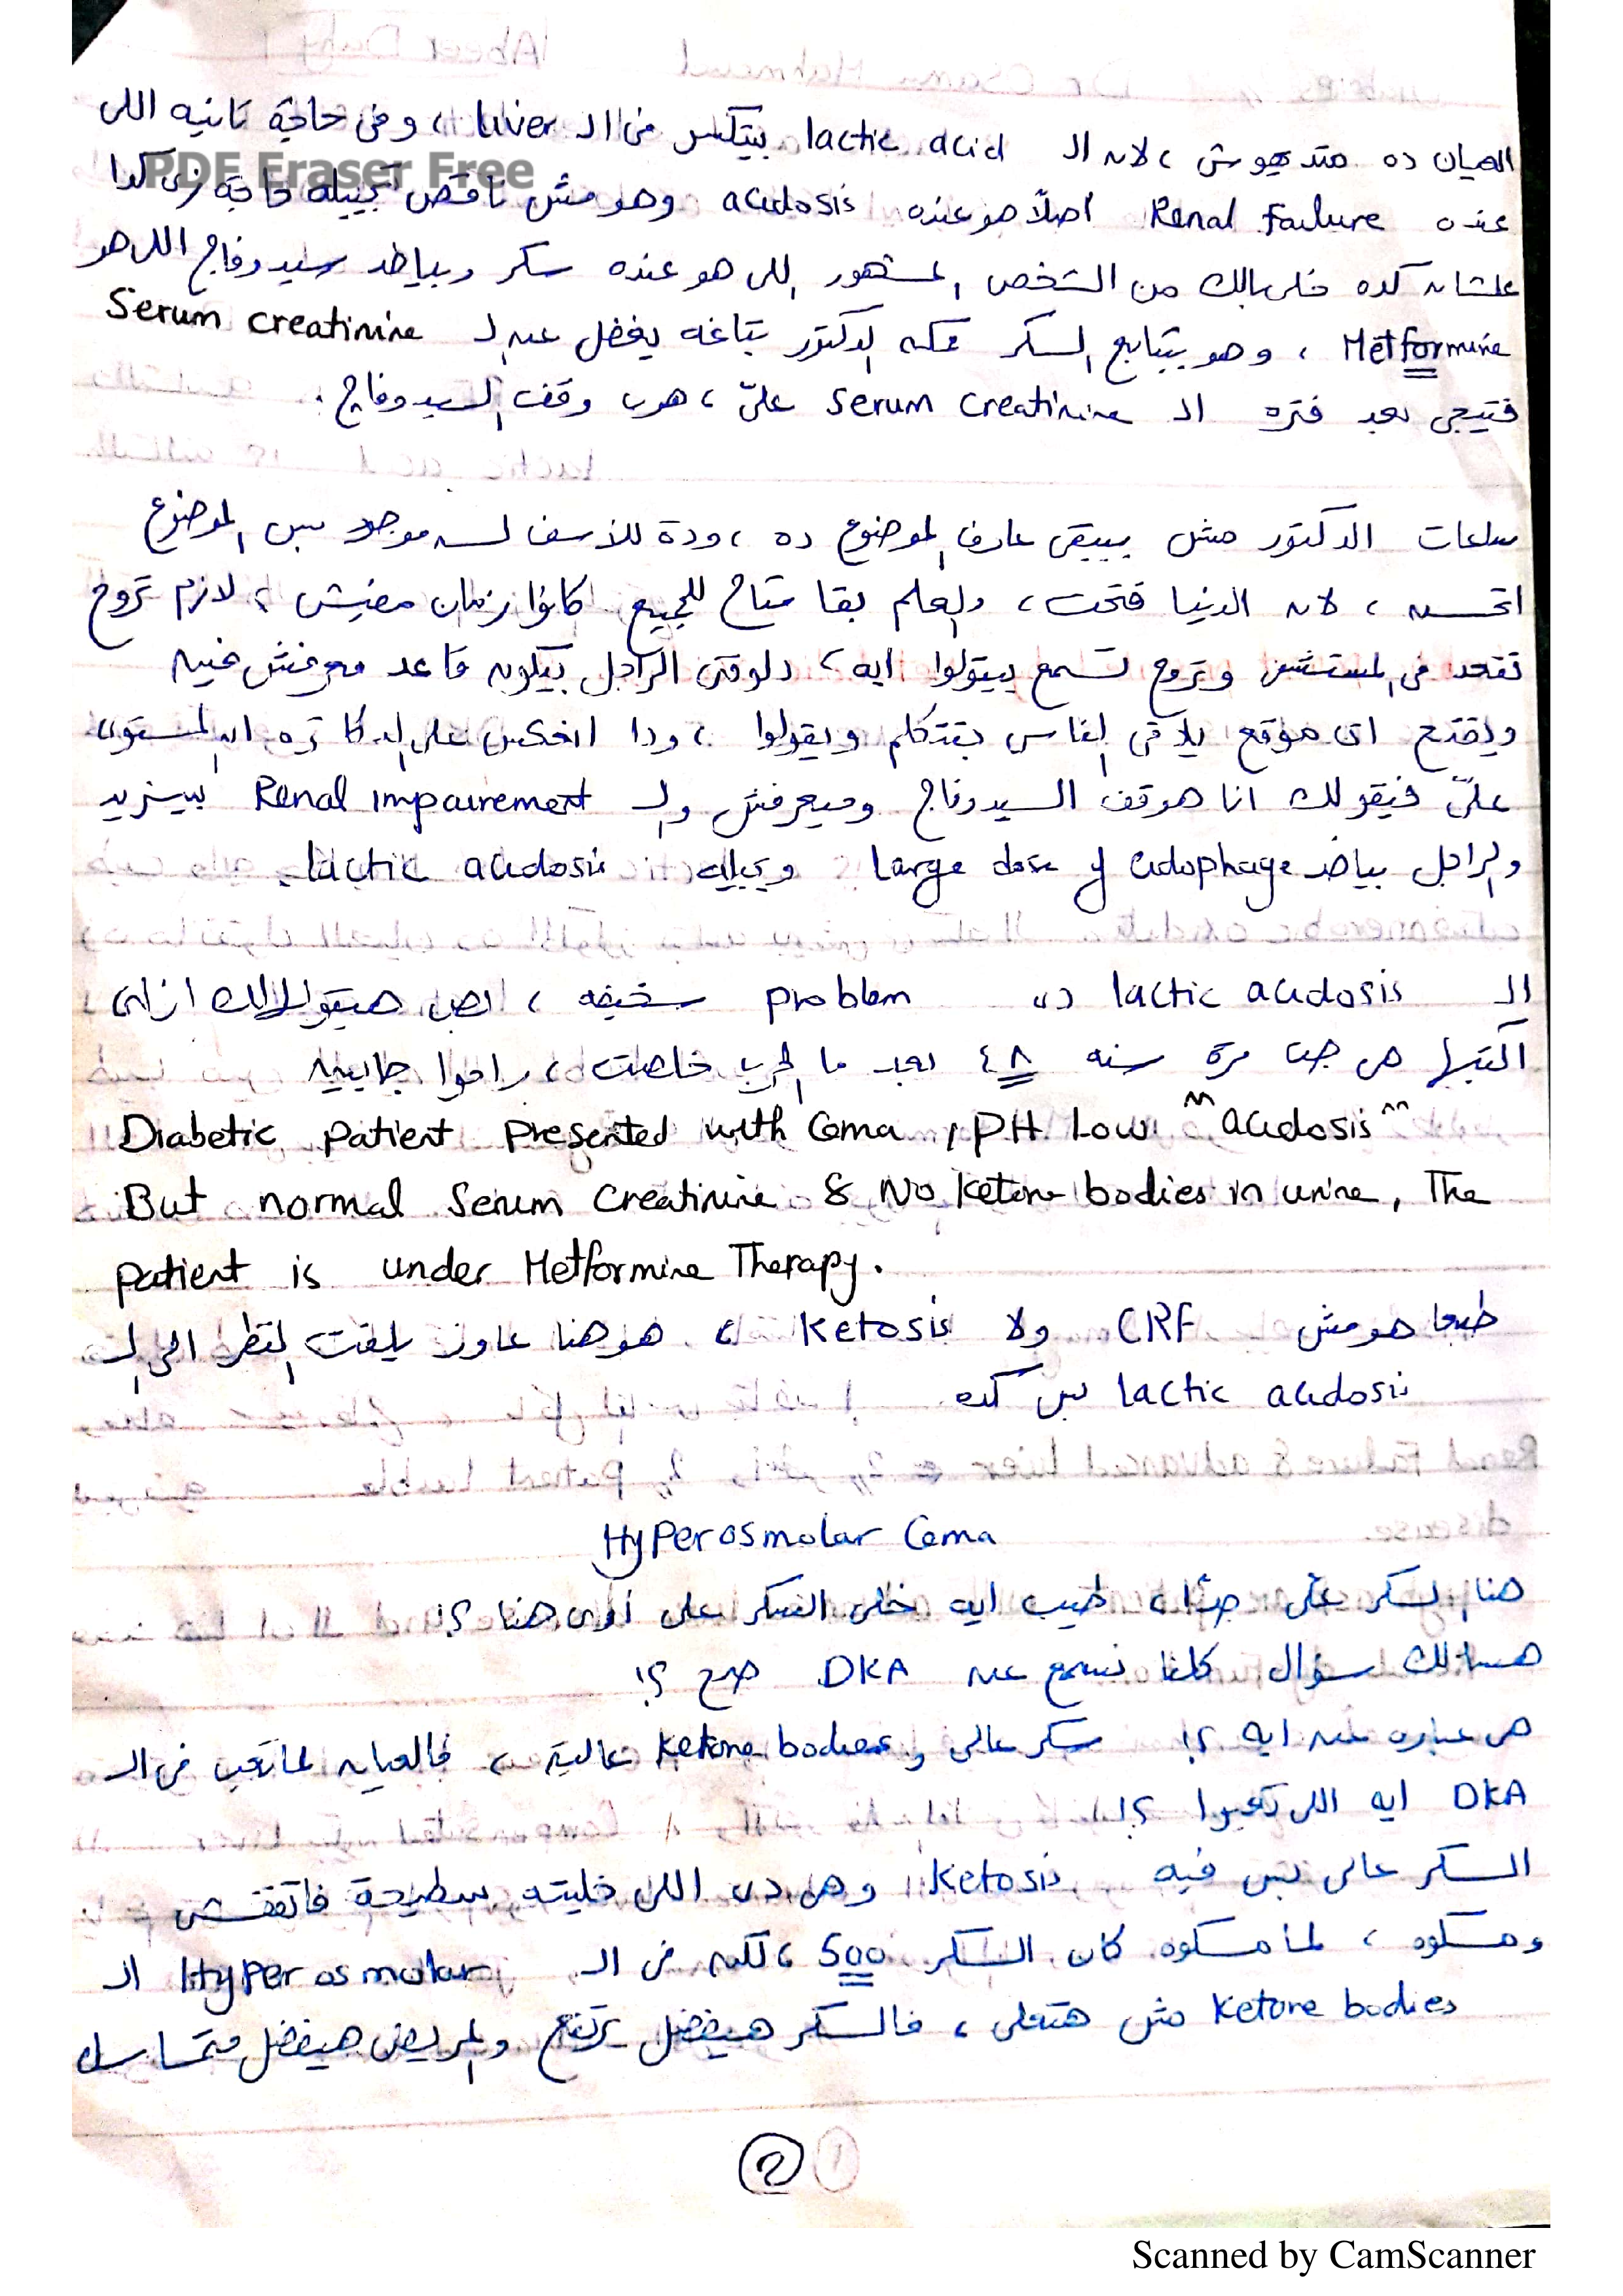 العيان ده متديهوش ، لانه الـ lactic acid بيتكسر فى الـ liver ، وفى حاجة تانيه اللى
PDF Eraser Free
عنده Renal Failure اصلًا هو عنده acidosis وهو مش ناقص تجيبله حاجة زى كدا
علشانه كده خلى بالك من الشخص المشهور اللى هو عنده سكر وبياخد سيدوفاج اللى هو
Metformine ، وهو بيتابع السكر ممكن الدكتور بتاعه يغفل عن الـ Serum creatinine
فتيجى بعد فتره الـ serum creatinine علىّ ، هوب وقف السيدوفاج .
ساعات الدكتور مش بيبقى عارف الموضوع ده ، ودة للأسف لسه موجود بس الموضوع
اتحسن ، لانه الدنيا فتحت ، والعلم بقا متاح للجميع كانوا زمان مفيش ، لازم تروح
تقعد فى المستشفى وتروح تسمع بيقولوا ايه ، دلوقتى الراجل بيكون قاعد معرفش فيه
ويفتح اى موقع يلاقى الناس بتتكلم ويقولوا ، ودا انعكس على الدكاتره ان المستوى
علىّ فيقولك انا هوقف السيدوفاج وميعرفش والـ Renal impairement بيزيد
والراجل بياخد large dose of cidophage ويجيله lactic acidosis.
الـ lactic acidosis دى problem سخيفه ، بص هيتقولالك ازاى ،
اكتبها هى جت مرة سنه ٤٨ بعد ما الحرب خلصت ، راحوا جايبين
Diabetic patient presented with Coma , PH Low "acidosis"
But normal Serum Creatinine & No Ketone bodies in urine, The
patient is under Metformine Therapy.
طبعا هو مش CRF ولا Ketosis ، هو هنا عاوز يلفت النظر الى الـ
lactic acidosis بس كده
HyPerosmolar Coma
هنا السكر على جدًا ، طيب ايه خلى السكر على اوى هنا ؟!
هسألك سؤال كلنا نسمع عن DKA صح ؟!
هى عباره عن ايه ؟! سكر عالى و Ketone bodies عالية ، فالعيان لما تعب فى الـ
DKA ايه اللى تعبوا ؟!
السكر عالى بس فيه Ketosis وهى دى اللى خليته سطيحة فاتقفش
ومسكوه ، لما مسكوه كان السكر 500 ، لكن فى الـ Hyper osmolar الـ
Ketone bodies مش هتعلى ، فالسكر هيفضل يرتفع والمريض هيفضل متماسك
2
Scanned by CamScanner